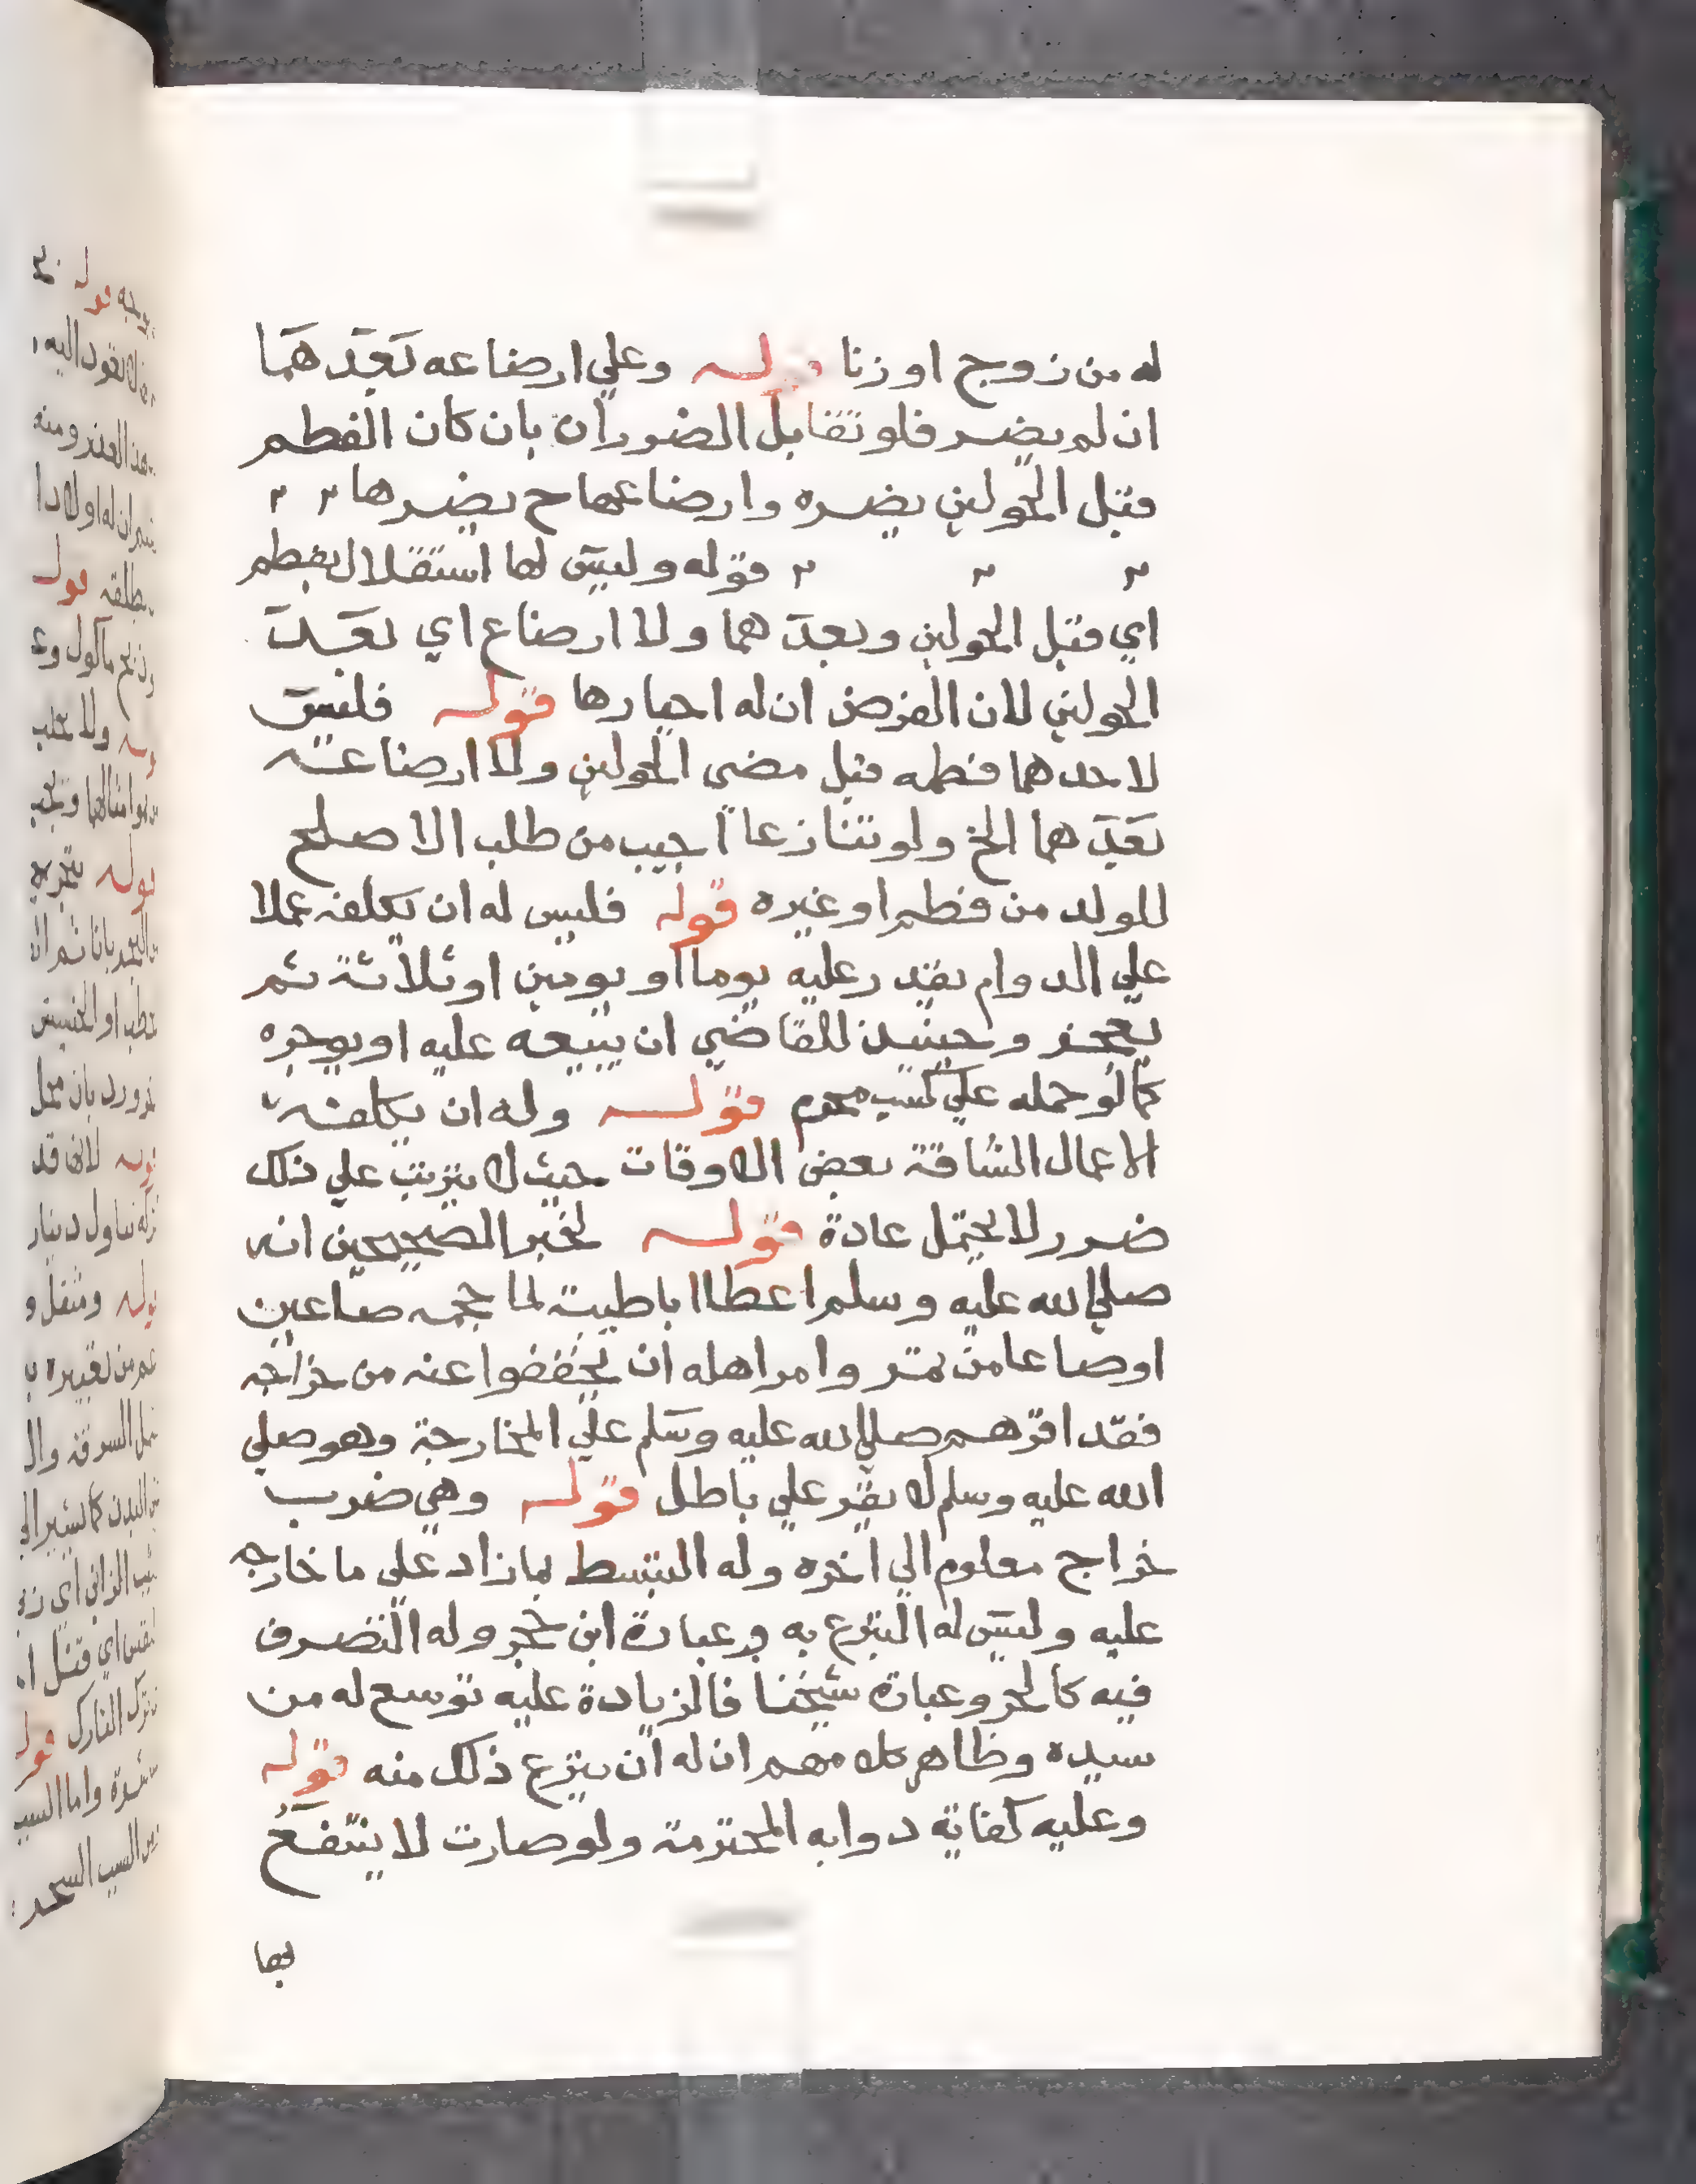 له من زوج او زنا قوله وعلي ارضاعه بَعدَهمَا
ان لم يضر فلو تقابل الضرران بان كان الفطم
قبل الحولين يضره وارضاعها ح يضرها
قوله وليس لها استقلال بفطم
اي قبل الحولين وبعدهما ولا ارضاع اي بعد
الحولين لان الفرض ان له اجبارها قوله فليس
لاحدهما فطمه قبل مضي الحولين ولا ارضاعه
بعدهما الخ ولو تنازعا اجيب من طلب الاصلح
للولد من فطم او غيره قوله فليس له ان يكلفه عملا
علي الدوام يقدر عليه يوما او يومين او ثلاثة ثم
يعجز وحينيذ للقاضي ان يبيعه عليه او يوجره
كما لو حمله علي كسب محرم قوله وله ان يكلفه
الاعمال الشاقة بعض الاوقات حيث لا يترتب علي ذلك
ضرر لا يحتمل عادة قوله لخبر الصحيحين انه
صلي الله عليه وسلم اعطا اباطيبة لما حجمه صاعين
او صاعا من تمر وامر اهله ان يخففوا عنه من خراجه
فقد اقرهم صلي الله عليه وسلم علي المخارجة وهو صلي
الله عليه وسلم لا يقر علي باطل قوله وهي ضرب
خراج معلوم الي اخره وله التبسط بما زاد علي ما خارجه
عليه وليس له التبرع به وعبارة ابن حجر وله التصرف
فيه كالحر وعبارة شيخنا فالزيادة عليه توسع له من
سيده وظاهر كلامهم ان له ان ينزع ذلك منه قوله
وعليه كفاية دوابه المحترمة ولو صارت لا ينتفع
بها